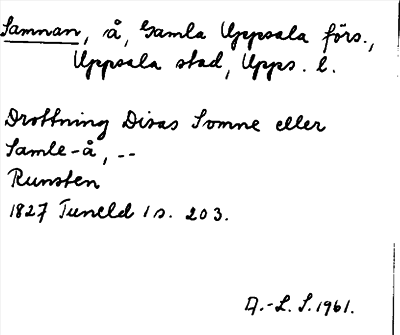 Samnan, å, Gamla Uppsala förs.,
Uppsala stad, Upps. l.
Drottning Disas Somne eller
Samle-å, --
Runsten
1827 Tuneld 1 s. 203.
A.-L. S. 1961.